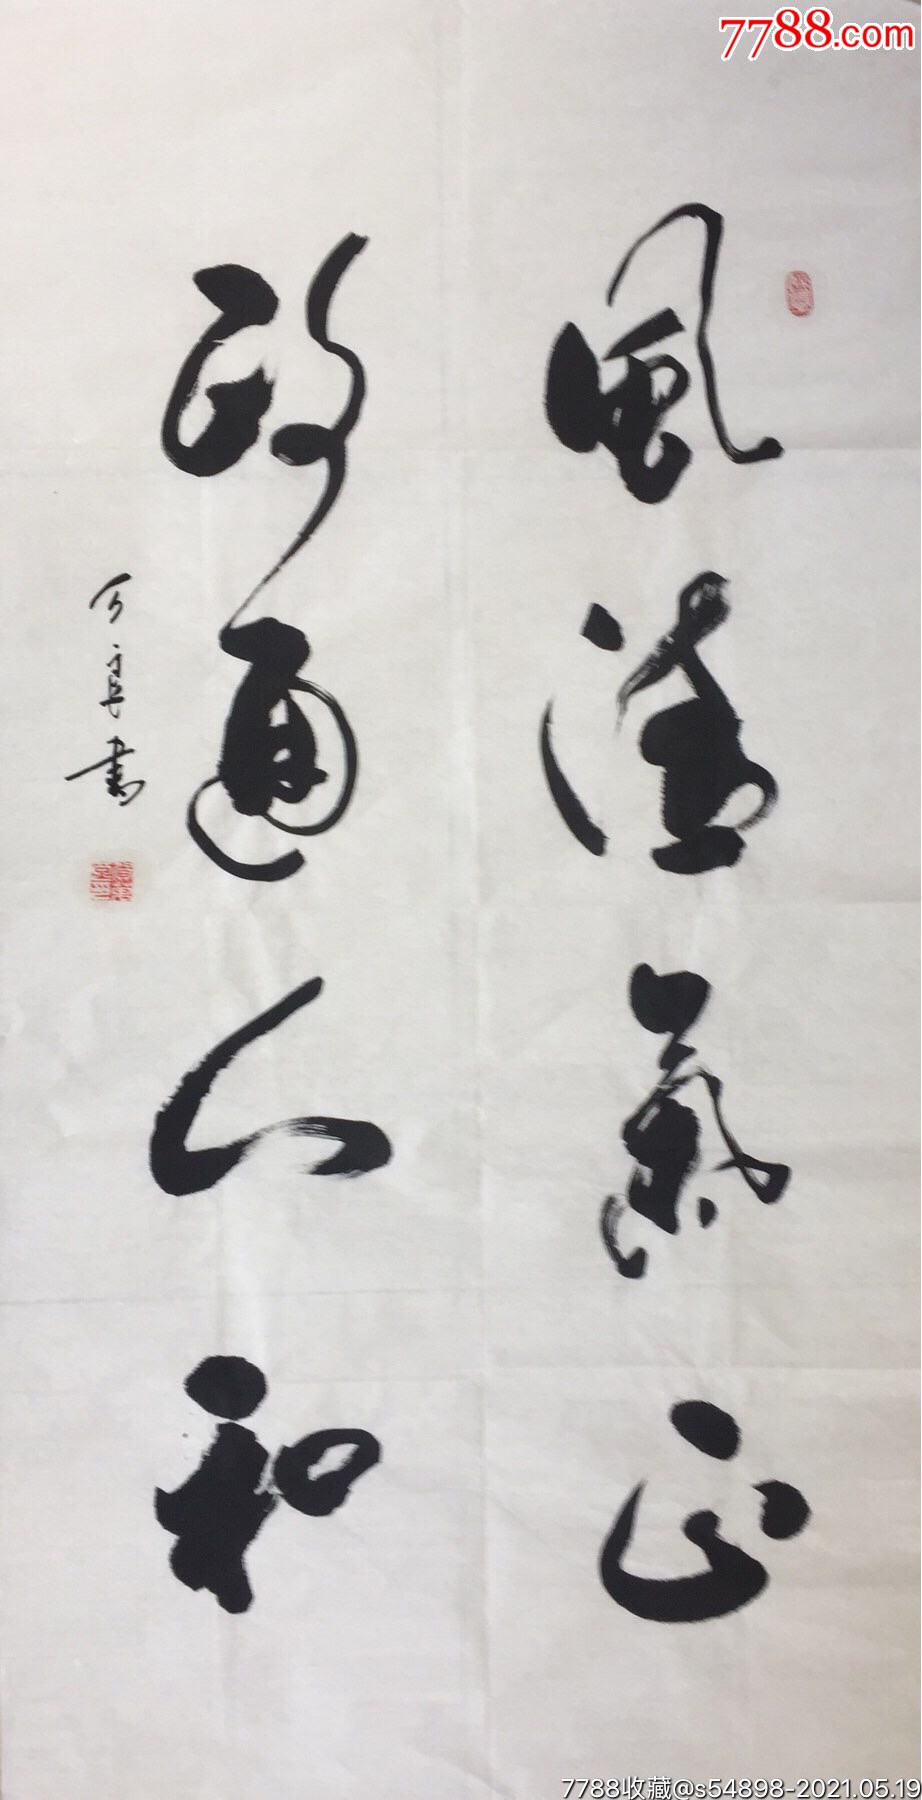 7788.com
風清氣正
政通人和
書
7788收藏@s54898-2021.05.19